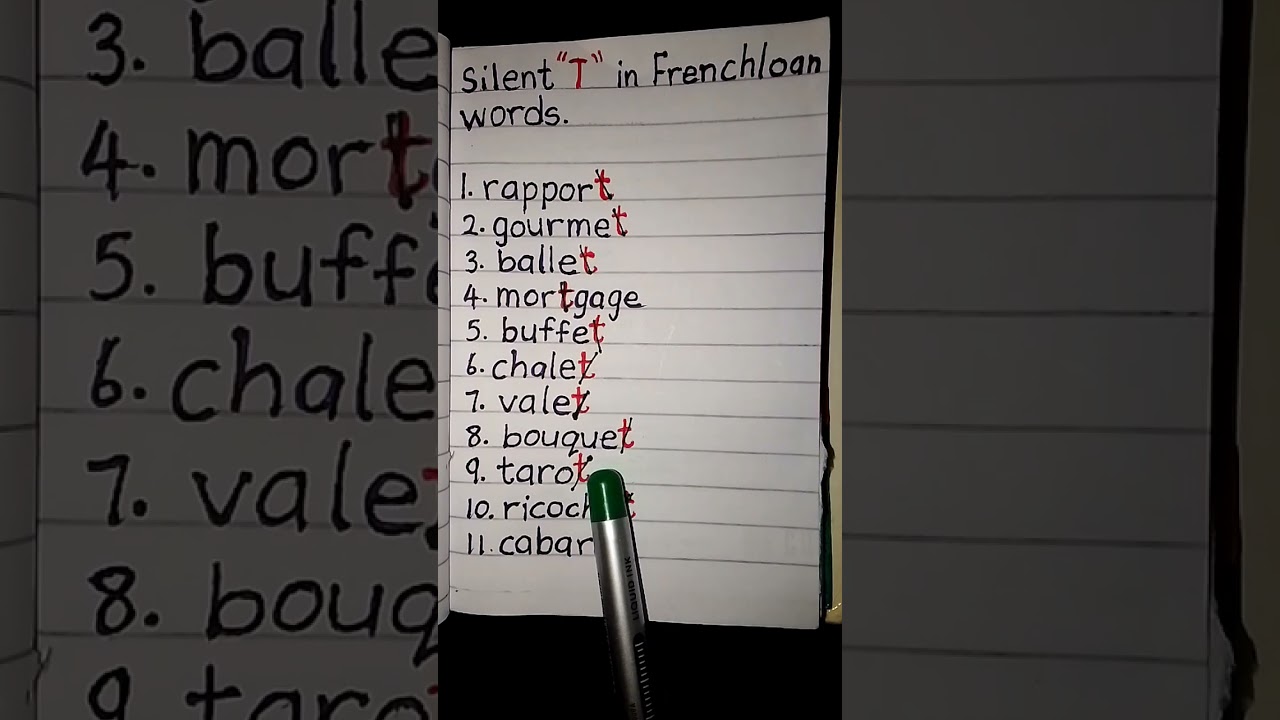 Silent "T" in Frenchloan
words.
1. rapport
2. gourmet
3. ballet
4. mortgage
5. buffet
6. chalet
7. valet
8. bouquet
9. tarot
10.
11.
LIQUID INK
3. balle
4. mort
5. buff
6. chale
7. vale
8. bouq
9. taro